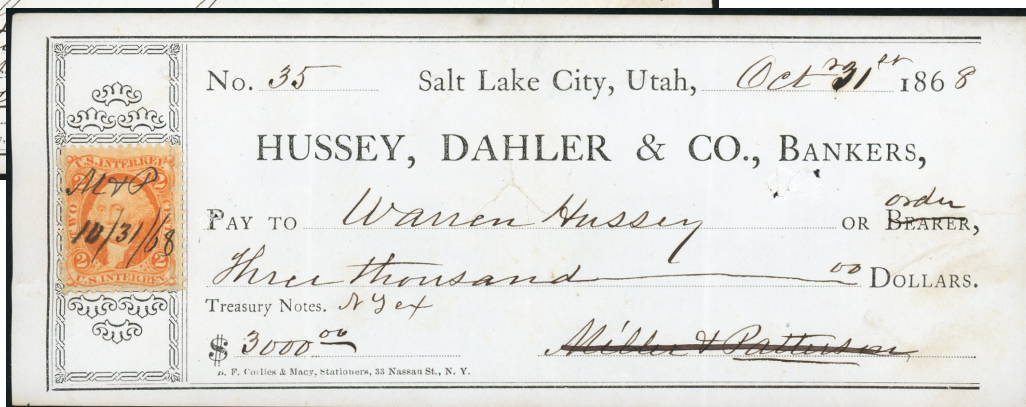 No. 35 Salt Lake City, Utah, Oct 31st 1868
HUSSEY, DAHLER & CO., BANKERS,
order
PAY TO Warren Hussey OR BEARER,
Three thousand 00 DOLLARS.
Treasury Notes. N Y ex
$ 3000 00 Miller & Patterson
B. F. Corlies & Macy, Stationers, 33 Nassau St., N. Y.
U.S. INTER REV
M & P
TWO
10/31/68
2 2
U.S. INTER REV